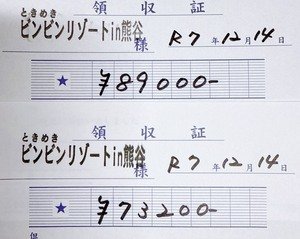 領収証
ときめき
ピンピンリゾートin熊谷
様 R7年12月14日
★ ¥89000-
領収証
ときめき
ピンピンリゾートin熊谷
様 R7年12月14日
★ ¥73200-